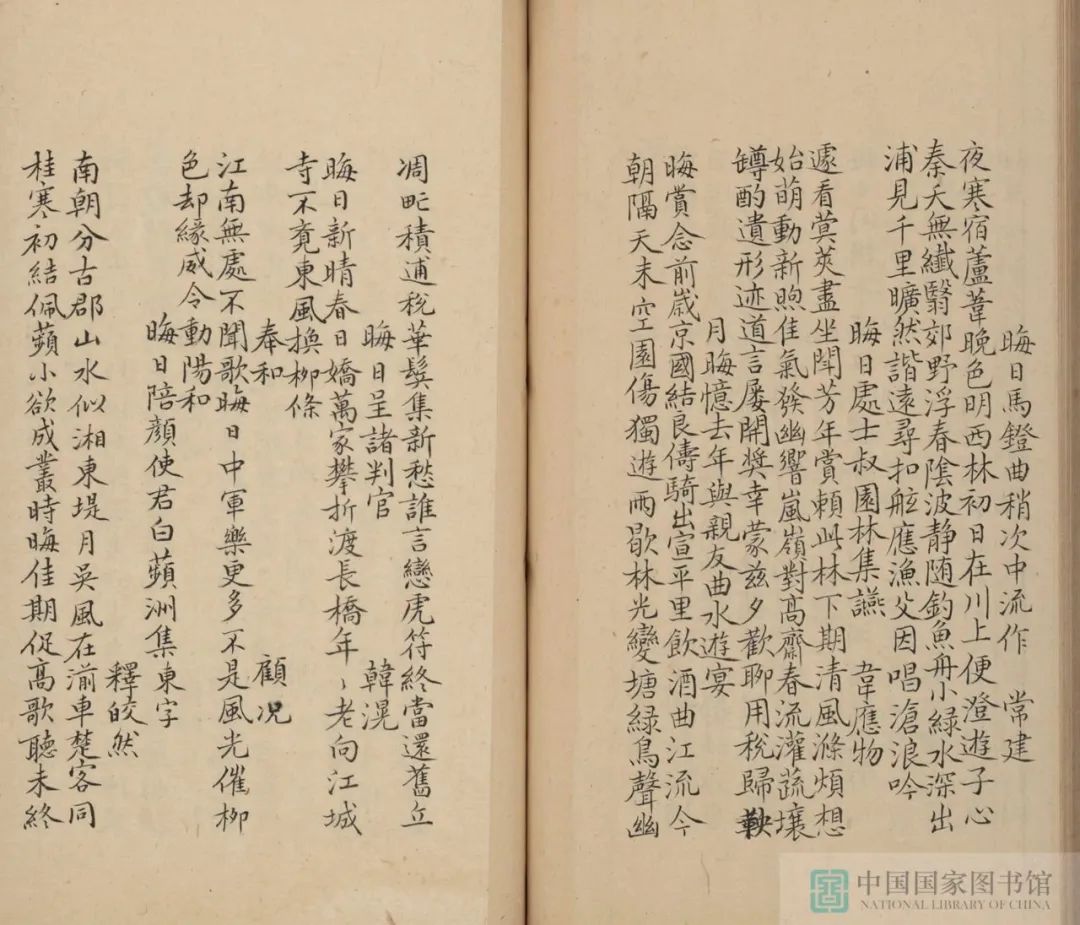 晦日馬鐙曲稍次中流作　常建
夜寒宿蘆葦晚色明西林初日在川上便澄遊子心
秦天無纖翳郊野浮春陰波靜随釣魚舟小綠水深出
浦見千里曠然諧遠尋扣舷應漁父因唱滄浪吟
晦日處士叔園林集讌　韋應物
遽看蓂莢盡坐聞芳年賞賴此林下期清風滌煩想
始萌動新煦佳氣發幽響嵐嶺對高齋春流灌蔬壤
罇酌遺形迹道言屢開奬幸蒙兹夕歡聊用稅歸鞅
月晦憶去年與親友曲水遊宴
晦賞念前歲京國結良儔騎出宣平里飲酒曲江流今
朝隔天末空園傷獨遊雨歇林光變塘綠鳥聲幽
凋甿積逋稅華鬓集新愁誰言戀虎符終當還舊丘
晦日呈諸判官　韓滉
晦日新晴春日嬌萬家攀折渡長橋年〻老向江城
寺不覺東風換柳條
奉和　顧况
江南無處不聞歌晦日中軍樂更多不是風光催柳
色却緣威令動陽和
晦日陪顏使君白蘋洲集東字
釋皎然
南朝分古郡山水似湘東堤月吳風在湔車楚客同
桂寒初結佩蘋小欲成叢時晦佳期促高歌聽未終
中国国家图书馆
NATIONAL LIBRARY OF CHINA